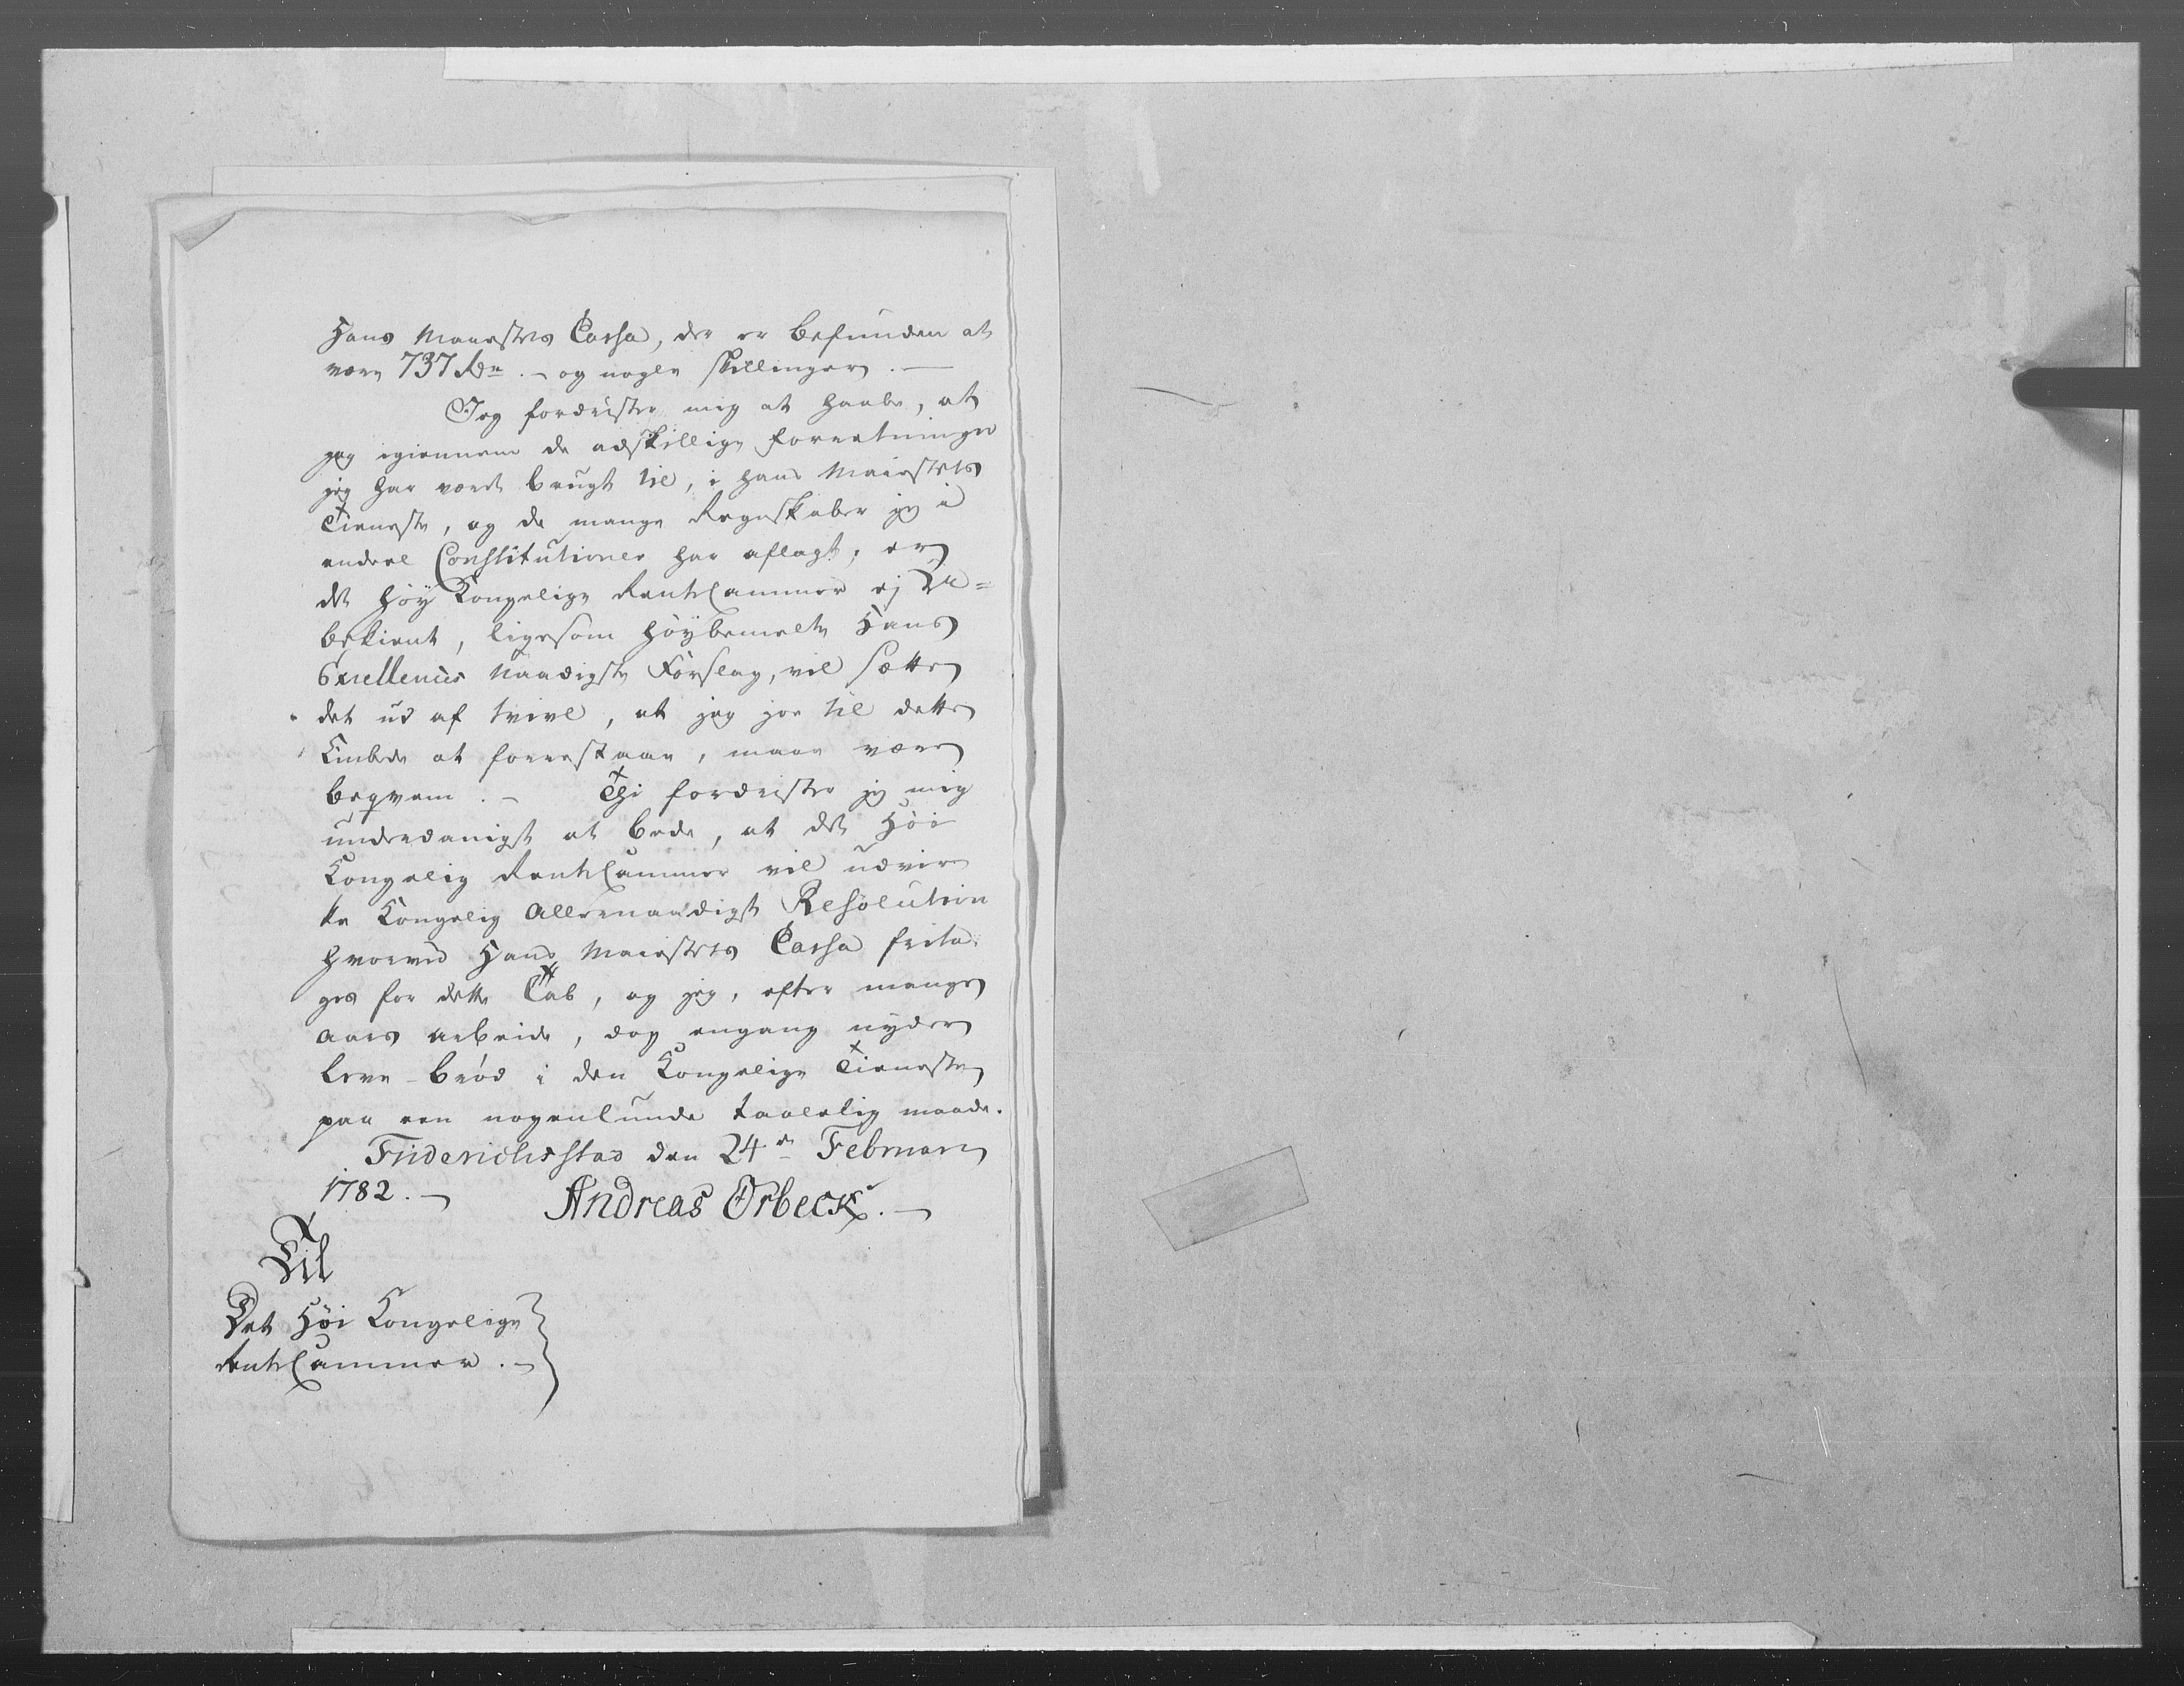 Hans Maiestets Cassa, der er befunden at
være 737 Rdr. - og nogle skillinger. -
Jeg fordrister mig at haabe, at
jeg igiennem de adskillige forretninger
jeg har været brugt til, i hans Maiestets
Tieneste, og de mange Regnskaber jeg i
endeel Constitutioner har aflagt, er
det høy Kongelige RenteCammer ej Ube=
bekient, ligesom høybemelte Hans
Excellences Naadigste Forslag, vil sætte
det ud af tvivl, at jeg jo til dette
Embede at forrestaae, maae være
beqvem. - Thi fordrister jeg mig
underdanigst at bede, at det Høi
Kongelig RenteCammer vil udvir
ke Kongelig Allernaadigst Resolution
hvorved Hans Maiestets Cassa frita
ges for dette Tab, og jeg, efter mange
Aars arbeide, dog engang nyder
leve-brød i den Kongelige Tieneste
paa een nogenlunde taalelig maade.
Friderichsstad den 24de Februari
1782. - Andreas Ørbeck. -
Til
Det Høi Kongelige
RenteCammer. -